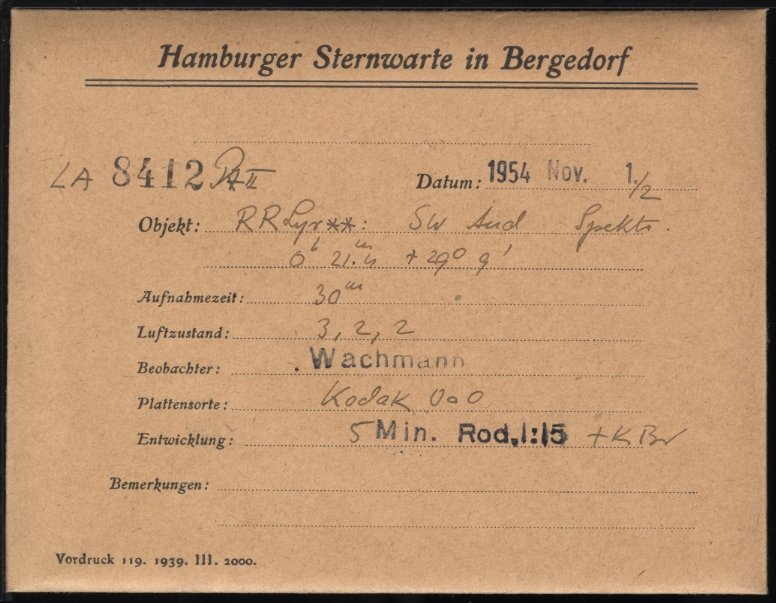 Hamburger Sternwarte in Bergedorf
LA 8412 II
Datum: 1954 Nov. 1./2
Objekt: RR Lyr **: SW And Spektr.
0h 21.m4 + 29° 9'
Aufnahmezeit: 30m
Luftzustand: 3, 2, 2
Beobachter: Wachmann
Plattensorte: Kodak OaO
Entwicklung: 5 Min. Rod. 1:15 + KBr
Bemerkungen:
Vordruck 119. 1939. III. 2000.